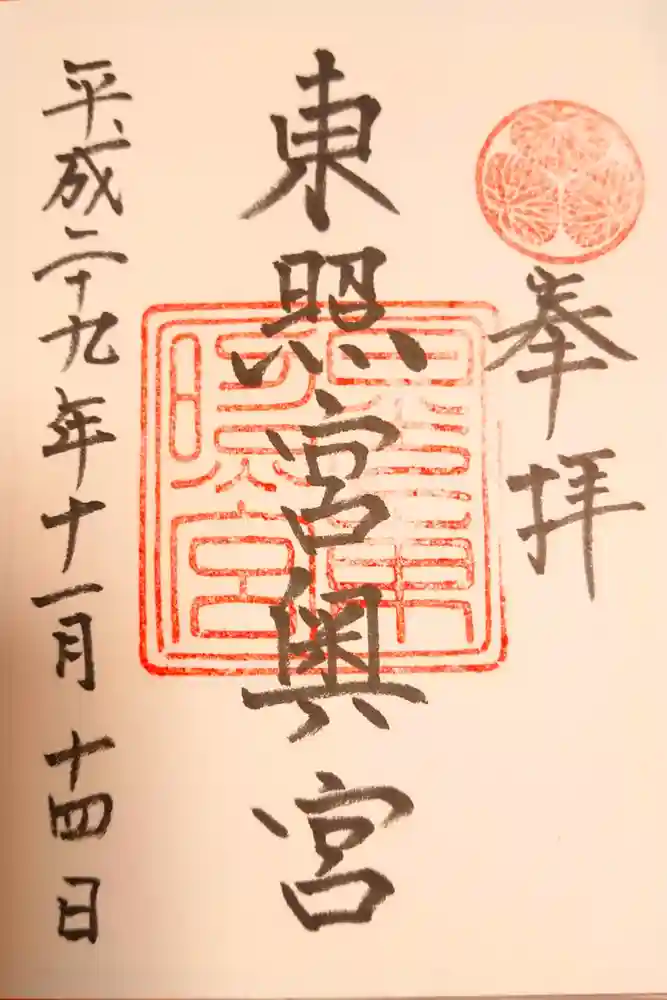 奉拝
東照宮奥宮
平成二十九年十一月十四日